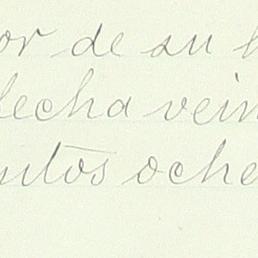 or de su
fecha vein
ntos oche